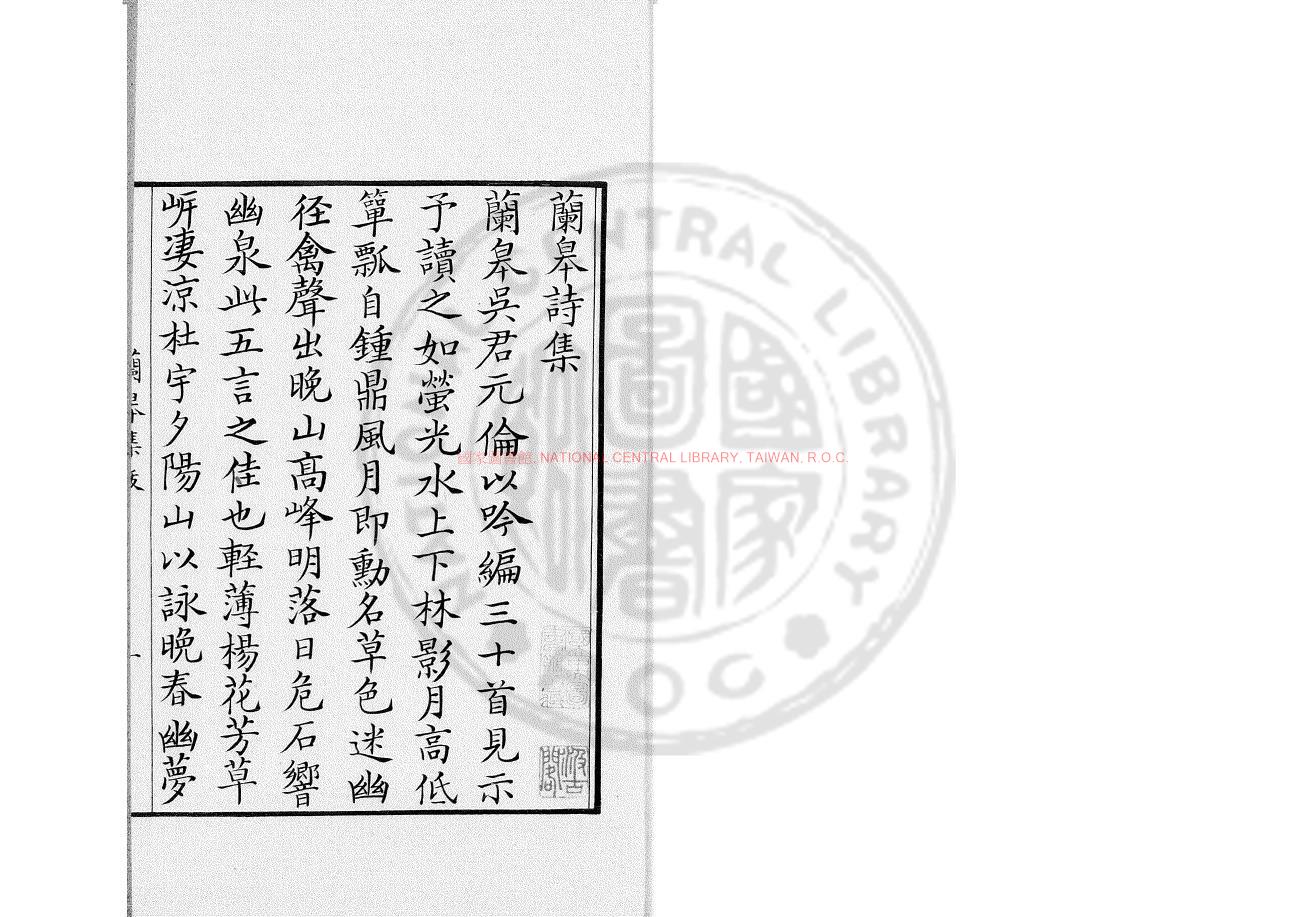 蘭皋詩集
蘭皋吳君元倫以吟編三十首見示
予讀之如螢光水上下林影月高低
簞瓢自鍾鼎風月即勳名草色迷幽
径禽聲出晚山高峰明落日危石響
幽泉此五言之佳也軽薄楊花芳草
岍凄凉杜宇夕陽山以詠晚春幽夢
蘭皋集
一
汲古閣
國家圖書館
國家圖書館, NATIONAL CENTRAL LIBRARY, TAIWAN, R.O.C.
NATIONAL CENTRAL LIBRARY ROC